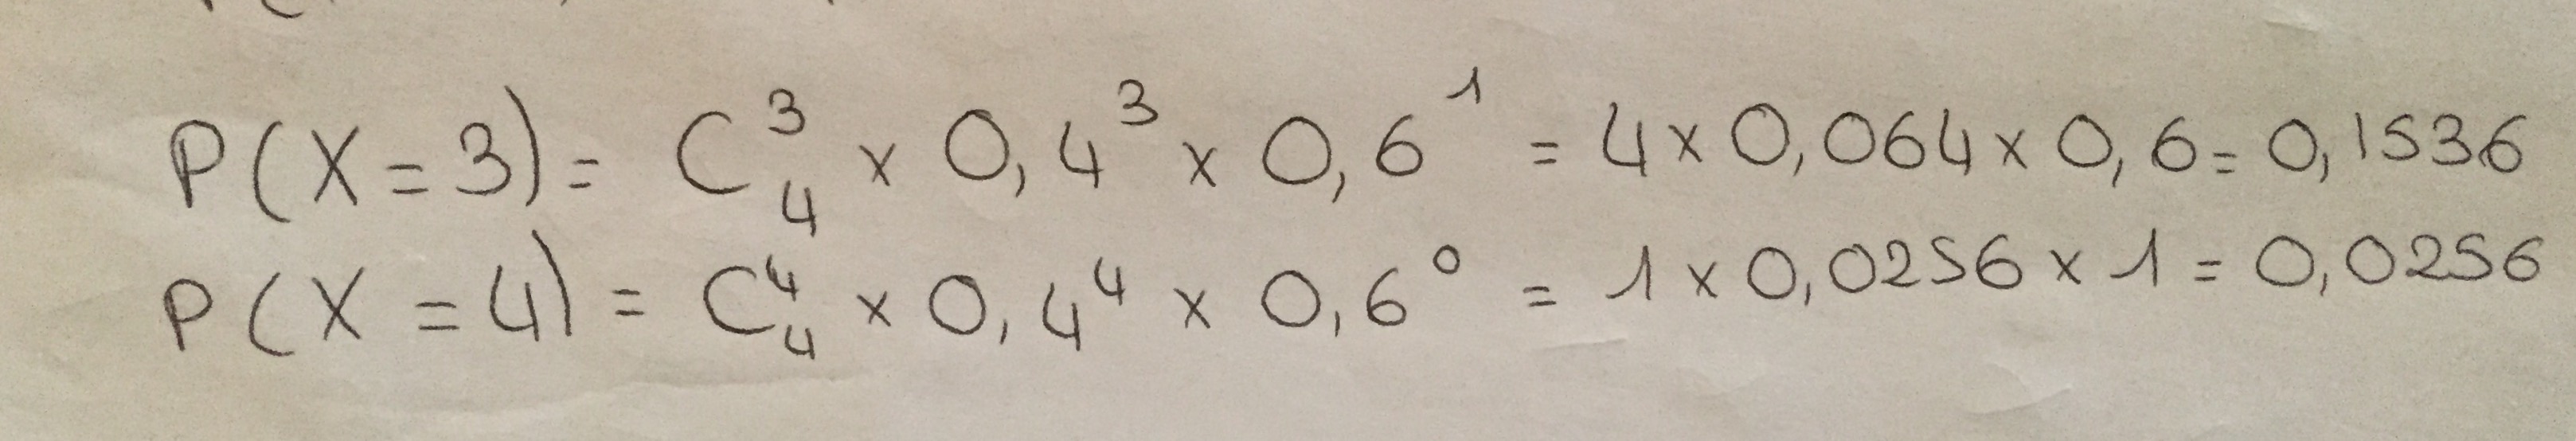 P(X=3) = C³₄ × 0,4³ × 0,6¹ = 4 × 0,064 × 0,6 = 0,1536
P(X=4) = C⁴₄ × 0,4⁴ × 0,6⁰ = 1 × 0,0256 × 1 = 0,0256